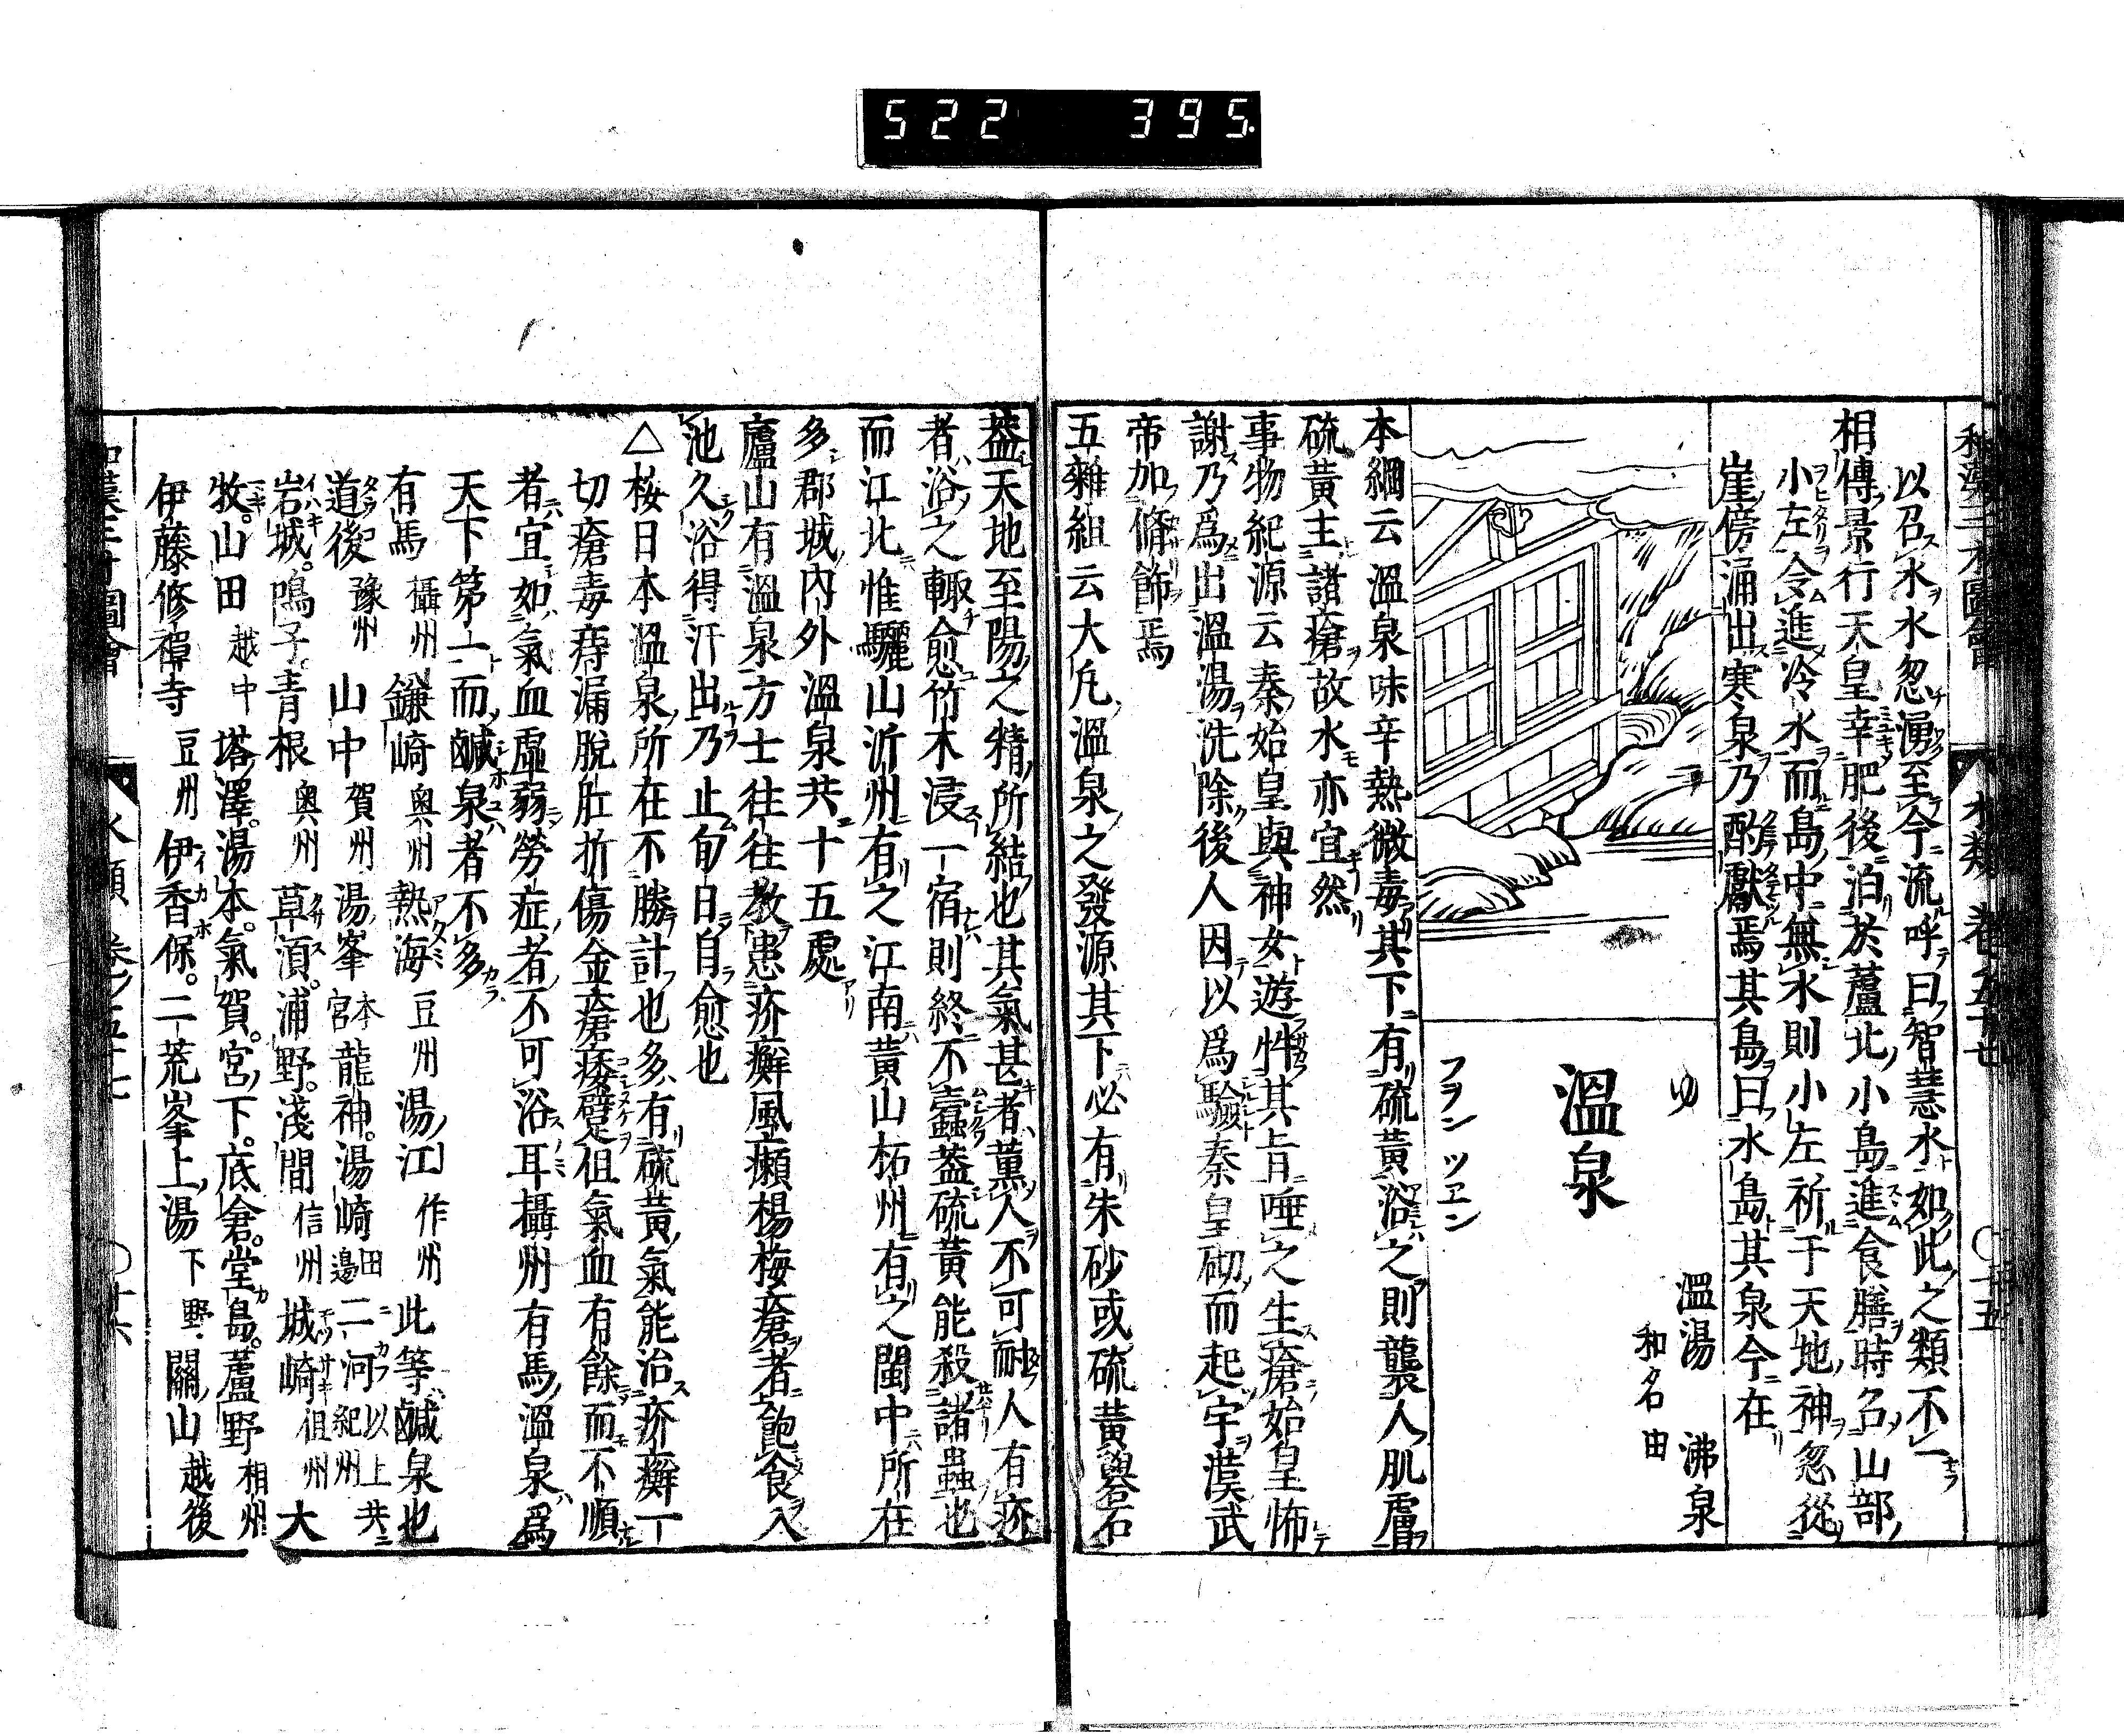 522 395.
以召水水忽湧至今流呼曰智慧水如此之類不一
相傳景行天皇幸肥後泊於蘆北小島進食膳時召山部
小左令進冷水而島中無水則小左祈于天地神忽從
崖傍涌出寒泉乃酌獻焉其島曰水島其泉今在
ゆ
溫泉
フヲン ツヱン
溫湯 沸泉
和名由
本綱云溫泉味辛熱微毒其下有硫黃浴之則襲人肌膚
硫黃主諸瘡故水亦宜然
事物紀源云秦始皇與神女遊忤其旨唾之生瘡始皇怖
謝乃爲出溫湯洗除後人因以爲驗秦皇砌而起宇漢武
帝加脩飾焉
五雜組云大凡溫泉之發源其下必有朱砂或硫黃礜石
蓋天地至陽之精所結也其氣甚者薰人不可耐人有疥
者浴之輙愈竹木浸一宿則終不蠹蓋硫黃能殺諸蟲也
而江北惟驪山沂州有之江南黃山柘州有之閩中所在
多郡城内外溫泉共十五處
廬山有溫泉方士往往教患疥癬風癩楊梅瘡者飽食入
池久浴得汗出乃止旬日自愈也
△桉日本溫泉所在不勝計也多有硫黃氣能治疥癬一
切瘡毒痔漏脫肛折傷金瘡痿躄但氣血有餘而不順
者宜如氣血虛弱勞症者不可浴耳攝州有馬溫泉爲
天下第一而鹹泉者不多
有馬 攝州 鎌崎 奥州 熱海 豆州 湯江 作州 此等鹹泉也
道後 豫州 山中 賀州 湯峯 本宮 龍神。湯崎 田邉 二河 以上共紀州
岩城。鳴子。青根 奥州 草湏。浦野。淺間 信州 城崎 但州 大
牧。山田 越中 塔澤。湯本。氣賀。宮下。底倉。堂島。蘆野 相州
伊藤修禪寺 豆州 伊香保。二荒峯上湯 下野 關山 越後